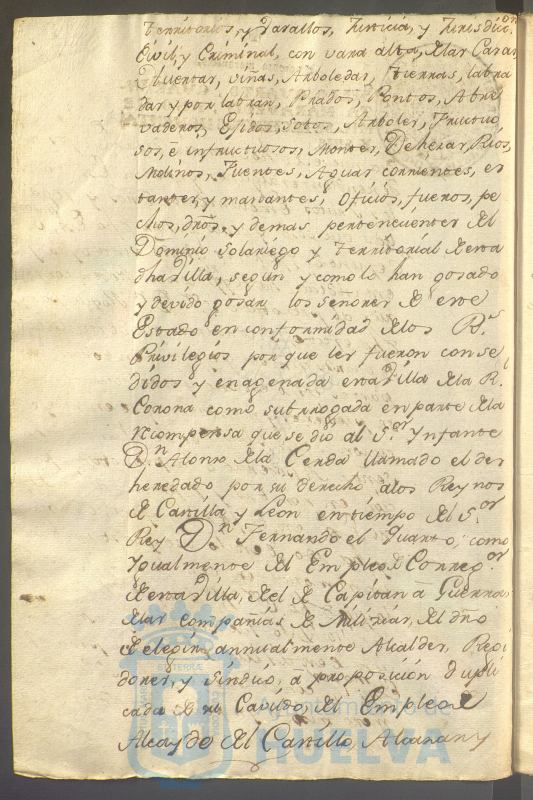 territorios, y Vasallos, Justicia, y Jurisdicc.on
Civil, y Criminal, con vara alta, de las Casas
Huertas, viñas, Arboledas, tierras, labra
das y por labrar, Prados, Pastos, Abre
vaderos, Exidos, Sotos, Arboles, fructuo
sos, e infructuosos, Montes, Dehesas, Rios,
Molinos, Fuentes, Aguas corrientes, es
tantes, y manantes; Oficios, fueros, pe
chos, dros. y demas pertenecientes del
Dominio Solariego y territorial de esta
dha Villa, segun y como lo han gosado
y devido gosar los señores de este
Estado en conformidad de los R.s
Privilegios por que les fueron conse
didos y enagenada esta Villa de la R.l
Corona como subrrogada en parte de la
Recompensa que se dio al S.or Infante
D.n Alonso de la Cerda llamado el des
heredado por su derecho a los Reynos
de Castilla y Leon en tiempo del S.or
Rey D.n Fernando el Quarto; como
Igualmente del Empleo de Correg.or
de esta Villa, del de Capitan a Guerra
de las compañias de Milicias, del dro
de elegir annualmente Alcaldes, Regi
dores, y Sindico, a proposicion dupli
cada de su Cavildo, del Empleo de
Alcayde del Castillo, Alcazar y
Ayuntamiento de
HUELVA